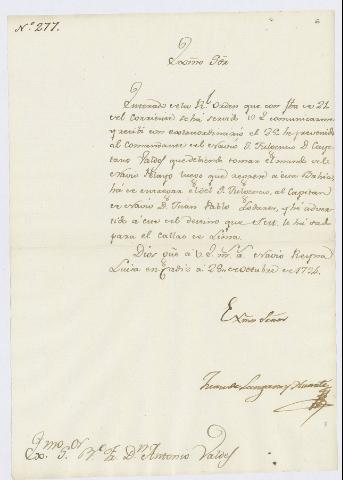 Nº 277.
Exmo Sor
Enterado de la Rl Orden que con fha de 21
del Corriente se há servido V.E. comunicarme
y recibí con extraordinario el 25 he prevenido
al Comandante del Navio S. Fulgencio D. Cayetano
Valdes que debiendo tomar el mando del
Navio Pelayo luego que regrese a esta Bahia,
há de entregar el del S. Fulgencio, al Capitan
de Navio D. Juan Pablo Lodares, y hé advertido
á este del destino que S.M. le ha dado
para el Callao de Lima.
Dios gue á V.E. ms as Navio Reyna
Luisa en Cadiz á 28 de octubre de 1794.
Exmo Señor
Juan de Langara y Huarte
Exmo Sor Bo Fr Dn Antonio Valdes